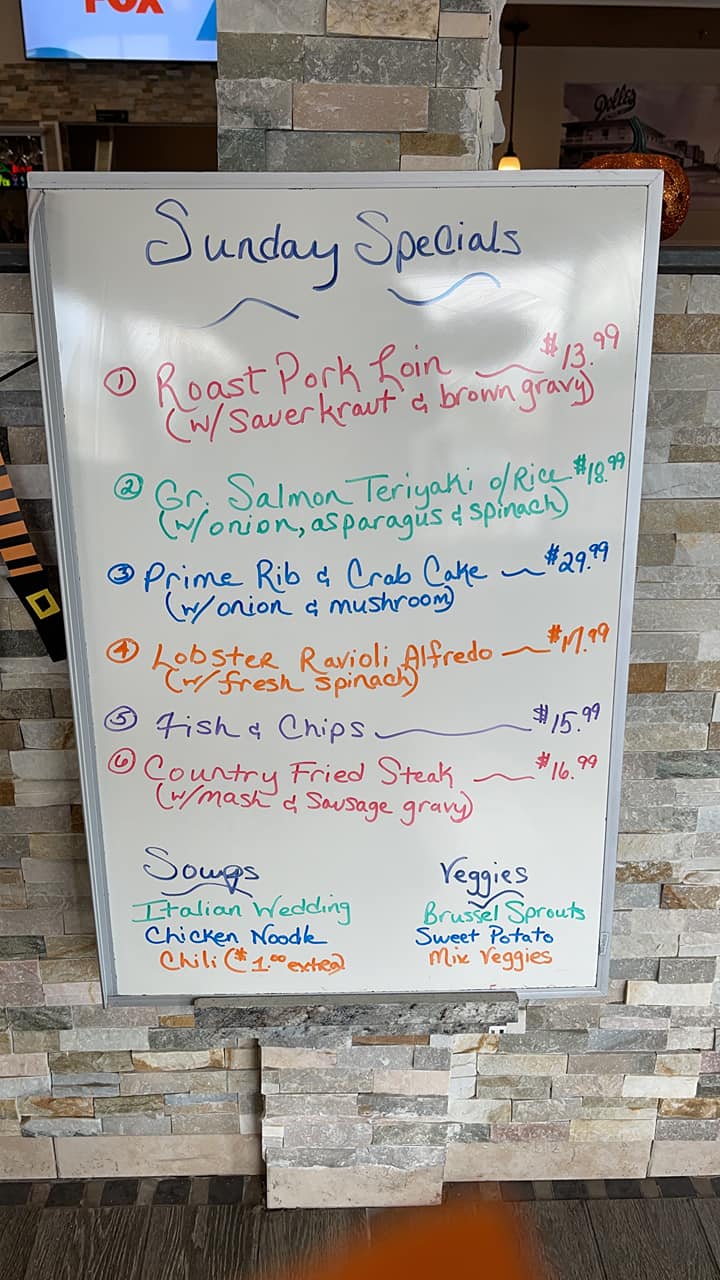 FOX
Dolles
Sunday Specials
① Roast Pork Loin $13.99
(w/ Sauerkraut & brown gravy)
② Gr. Salmon Teriyaki o/Rice $18.99
(w/onion, asparagus & spinach)
③ Prime Rib & Crab Cake $29.99
(w/onion & mushroom)
④ Lobster Ravioli Alfredo $17.99
(w/ fresh spinach)
⑤ Fish & Chips $15.99
⑥ Country Fried Steak $16.99
(w/mash & Sausage gravy)
Soups
Italian Wedding
Chicken Noodle
Chili ($1.00 extra)
Veggies
Brussel Sprouts
Sweet Potato
Mix Veggies